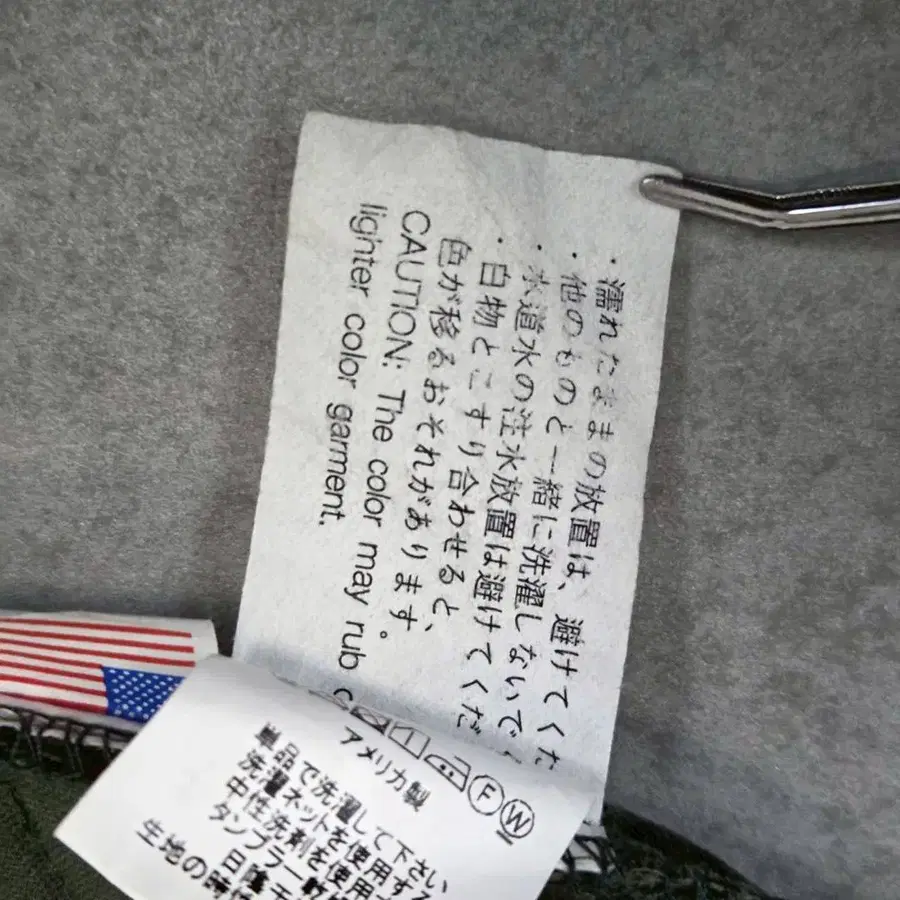 ・濡れたままの放置は、避けてくだ
・他のものと一緒に洗濯しないでく
・水道水の注水放置は避けてくだ
・白物とこすり合わせると、
色が移るおそれがあります。
CAUTION: The color may rub
lighter color garment.
F W
アメリカ製
単品で洗濯して下さい
洗濯ネットを使用する
中性洗剤を使用
タンブラー乾
日陰
生地の